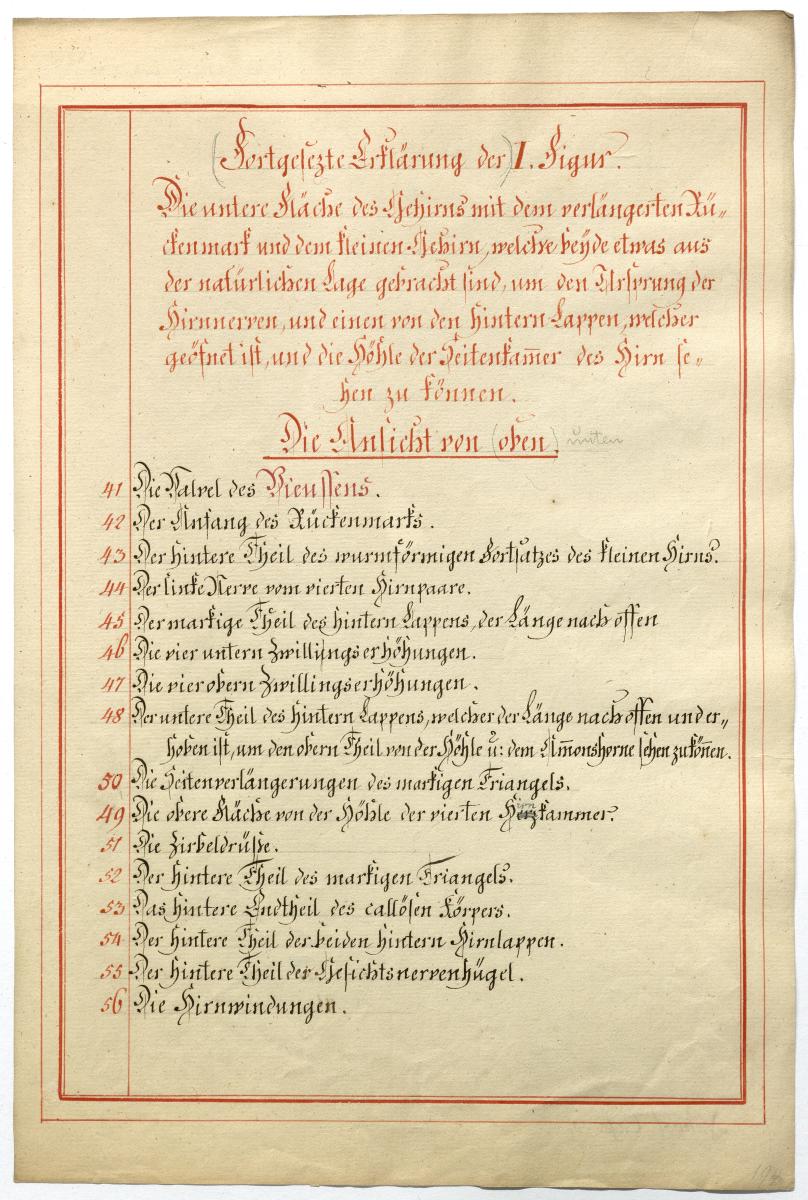 (Fortgesezte Erklärung der) I. Figur.
Die untere Fläche des Gehirns mit dem verlängerten Rü-
ckenmark und dem kleinen Gehirn, welche beyde etwas aus
der natürlichen Lage gebracht sind, um den Ursprung der
Hirnnerven, und einen von den hintern Lappen, welcher
geöfnet ist, und die Höhle der Seitenkam̅er des Hirn se-
hen zu können.
Die Ansicht von (oben) unten
41 Die Valvel des Vieussens.
42 Der Anfang des Rückenmarks.
43 Der hintere Theil des wurmförmigen Fortsatzes des kleinen Hirns.
44 Der linke Nerve vom vierten Hirnpaare.
45 Der markige Theil des hintern Lappens, der Länge nach offen
46 Die vier untern Zwillingserhöhungen.
47 Die vier obern Zwillingserhöhungen.
48 Der untere Theil des hintern Lappens, welcher der Länge nach offen und er-
hoben ist, um den obern Theil von der Höhle u: dem Am̅onshorne sehen zu kön̅en.
50 Die Seitenverlängerungen des markigen Triangels.
49 Die obere Fläche von der Höhle der vierten Herzkammer.
51 Die Zirbeldrüße.
52 Der hintere Theil des markigen Triangels.
53 Das hintere Endtheil des callösen Körpers.
54 Der hintere Theil der beiden hintern Hirnlappen.
55 Der hintere Theil der Gesichtsnervenhügel.
56 Die Hirnwindungen.